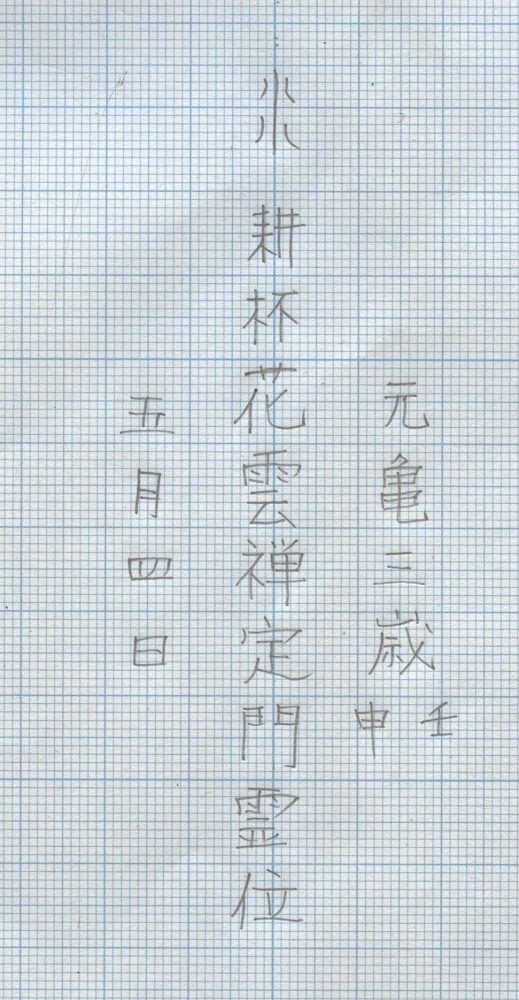 元亀三歳壬申
耕杯花雲禅定門霊位
五月四日